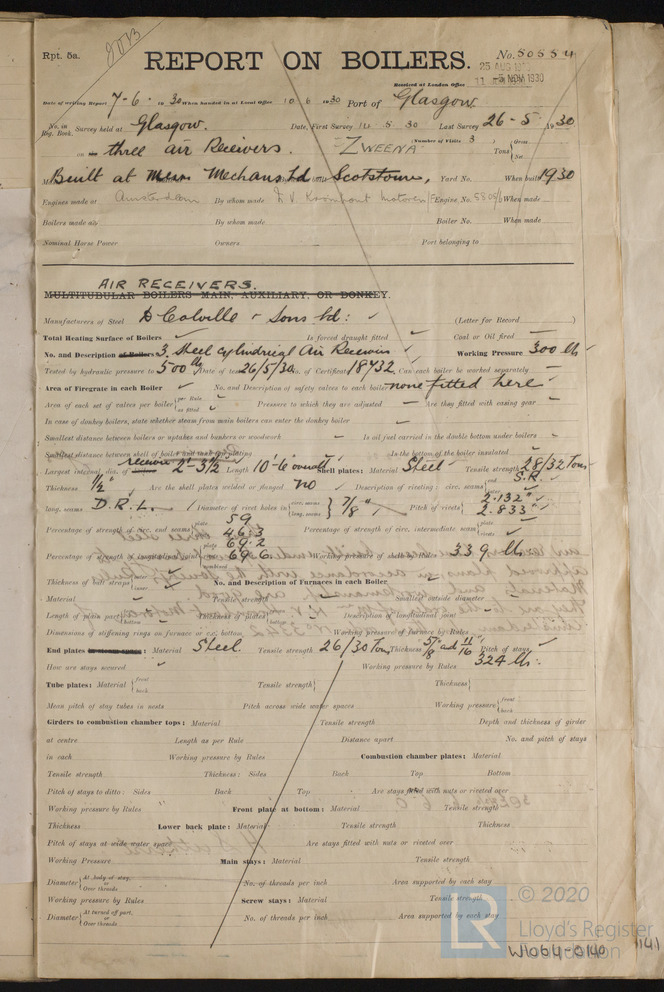 Rpt. 5a.
REPORT ON BOILERS.
No. 50554
25 AUG 193
NOV 1930
Received at London Office
Date of writing Report 7-6- 19 30 When handed in at Local Office 10 6 19 30 Port of Glasgow
No. in Reg. Book. Survey held at Glasgow. Date, First Survey 14 5 30 Last Survey 26-5-1930
on three air Receivers. "ZWEENA" (Number of Visits 3) Tons { Gross Net
Built at Mechans Ltd Scotstoun, Yard No. When built 1930
Engines made at Amsterdam By whom made N.V. Kromhout Motoren Engine No. When made
Boilers made at By whom made Boiler No. When made
Nominal Horse Power Owners Port belonging to
AIR RECEIVERS.
MULTITUBULAR BOILERS MAIN, AUXILIARY, OR DONKEY.
Manufacturers of Steel D Colville & Sons Ld: (Letter for Record )
Total Heating Surface of Boilers Is forced draught fitted Coal or Oil fired
No. and Description of Boilers 3 Steel cylindrical Air Receivers Working Pressure 300 lbs
Tested by hydraulic pressure to 500 lbs Date of test 26/5/30 No. of Certificate 18732 Can each boiler be worked separately
Area of Firegrate in each Boiler No. and Description of safety valves to each boiler none fitted here
Area of each set of valves per boiler { per Rule as fitted Pressure to which they are adjusted Are they fitted with easing gear
In case of donkey boilers, state whether steam from main boilers can enter the donkey boiler
Smallest distance between boilers or uptakes and bunkers or woodwork Is oil fuel carried in the double bottom under boilers
Smallest distance between shell of boiler and tank top plating Is the bottom of the boiler insulated
Largest internal dia. of receiver 2'-3½" Length 10'-6" overall Shell plates: Material Steel Tensile strength 28/32 Tons
Thickness ½" Are the shell plates welded or flanged no Description of riveting: circ. seams { end S.R.
long. seams D.R.L. Diameter of rivet holes in { circ. seams long. seams } 7/8" Pitch of rivets { 2.132" 2.833"
Percentage of strength of circ. end seams { plate 59 rivets 46.3 Percentage of strength of circ. intermediate seam { plate rivets
Percentage of strength of longitudinal joint { plate 69.2 rivets 69.6 combined Working pressure of shell by Rules 339 lbs
Thickness of butt straps { outer inner No. and Description of Furnaces in each Boiler
Material Tensile strength Smallest outside diameter
Length of plain part { top bottom Thickness of plates { crown bottom Description of longitudinal joint
Dimensions of stiffening rings on furnace or c.c. bottom Working pressure of furnace by Rules
End plates: Material Steel Tensile strength 26/30 Tons Thickness 5/8" and 11/16" Pitch of stays
How are stays secured Working pressure by Rules 324 lbs:
Tube plates: Material { front back Tensile strength { Thickness {
Mean pitch of stay tubes in nests Pitch across wide water spaces Working pressure { front back
Girders to combustion chamber tops: Material Tensile strength Depth and thickness of girder
at centre Length as per Rule Distance apart No. and pitch of stays
in each Working pressure by Rules Combustion chamber plates: Material
Tensile strength Thickness: Sides Back Top Bottom
Pitch of stays to ditto: Sides Back Top Are stays fitted with nuts or riveted over
Working pressure by Rules Front plate at bottom: Material Tensile strength
Thickness Lower back plate: Material Tensile strength Thickness
Pitch of stays at wide water space Are stays fitted with nuts or riveted over
Working Pressure Main stays: Material Tensile strength
Diameter { At body of stay, or Over threads No. of threads per inch Area supported by each stay
Working pressure by Rules Screw stays: Material Tensile strength
Diameter { At turned off part, or Over threads No. of threads per inch Area supported by each stay
LR
© 2020
Lloyd's Register
Foundation
W1064-0140
141